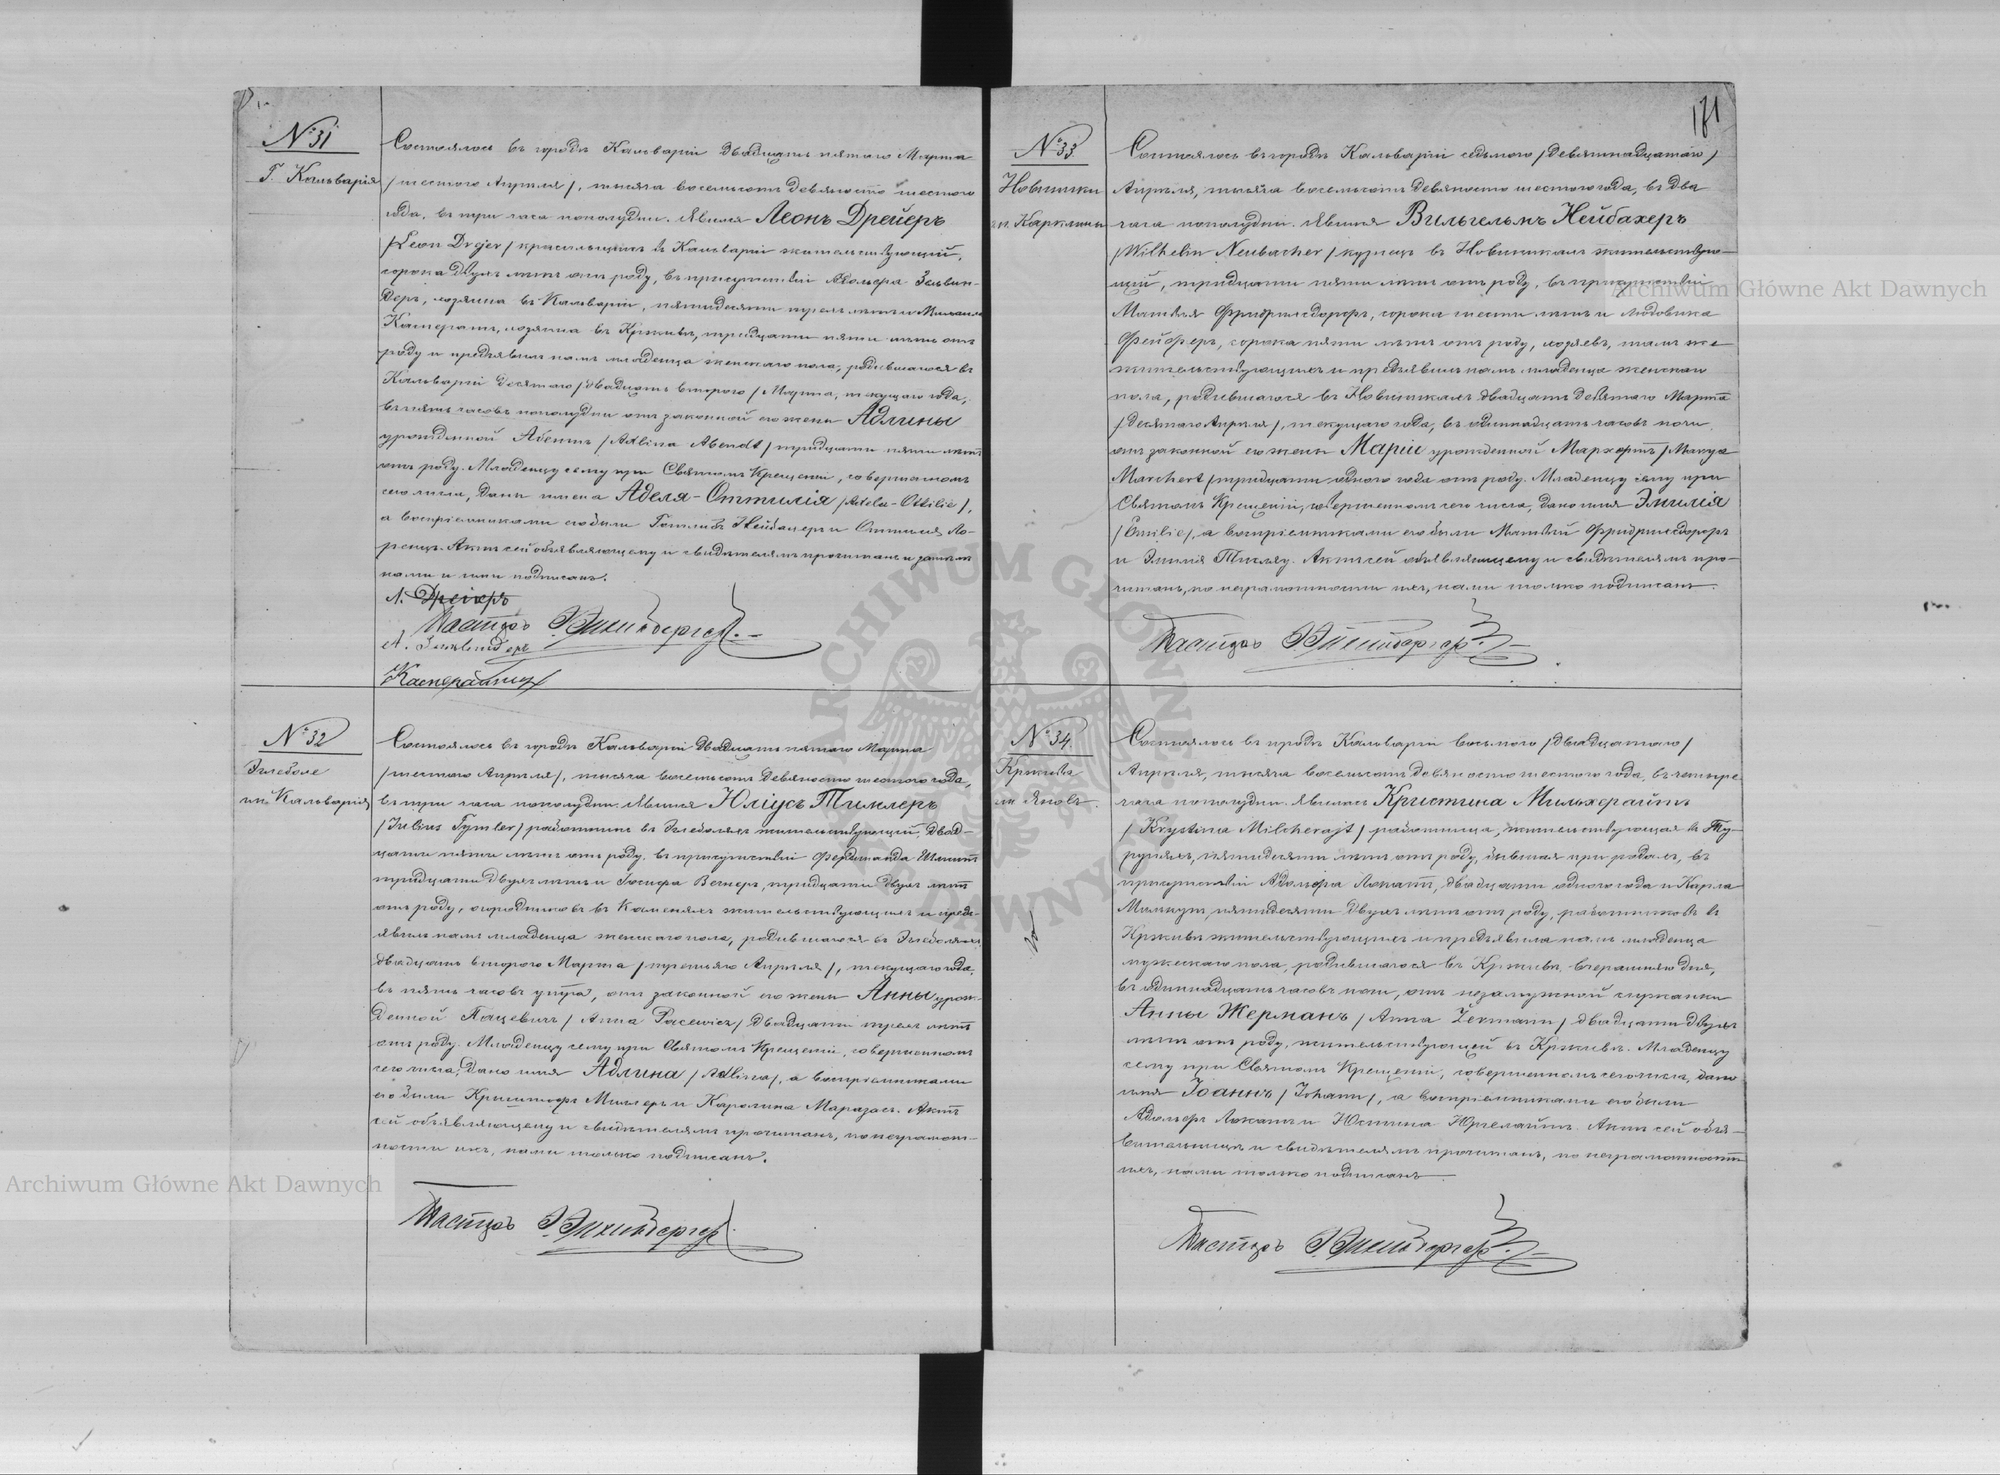 № 31
Г. Кальварія
Состоялось въ городѣ Кальваріи двадцать пятаго Марта
/шестого Апрѣля/, тысяча восемьсотъ девяносто шестого
года, въ три часа пополудни. Явился Леонъ Дрейеръ
/Leon Drejer/ красильщикъ въ Кальваріи жительствующій,
сорока двухъ лѣтъ отъ роду, въ присутствіи Адольфа Зальвин-
деръ, хозяина въ Кальваріи, пятидесяти трехъ лѣтъ и Михаила
хозяина въ Кржива, тридцати пяти лѣтъ отъ
роду и предъявилъ намъ младенца женскаго пола, родившагося въ
Кальваріи десятаго /двадцать второго/ Марта, текущаго года,
въ пять часовъ пополудни отъ законной его жены Адлины
урожденной Абентъ /Adlina Abendt/ тридцати пяти лѣтъ
отъ роду. Младенцу сему при Святомъ Крещеніи, совершенномъ
сего числа, даны имена Аделя-Оттилія /Adela-Ottilie/,
а воспріемниками его были Готлибъ Нейбахеръ и Оттилія Ло-
ренцъ. Актъ сей объявляющему и свидѣтелямъ прочитанъ и затѣмъ
нами и ими подписанъ.
Л. Дрейеръ
Пасторъ
А.
№ 32
Эглеболе
гм. Кальварія
Состоялось въ городѣ Кальваріи двадцать пятаго Марта
/шестого Апрѣля/, тысяча восемьсотъ девяносто шестого года,
въ три часа пополудни. Явился Юліусъ Тимлеръ
/Julius Tymler/ работникъ въ Эглеболяхъ жительствующій, двад-
цати пяти лѣтъ отъ роду, въ присутствіи Фердинанда Шмитъ
тридцати двухъ лѣтъ и Іосифа Вегнеръ, тридцати двухъ лѣтъ
отъ роду, огородниковъ въ жительствующихъ и предъ-
явилъ намъ младенца женскаго пола, родившагося въ Эглеболяхъ
двадцать второго Марта /третьяго Апрѣля/, текущаго года,
въ пять часовъ утра, отъ законной его жены Анны урож-
денной Пацевичъ /Anna Pacewicz/ двадцати трехъ лѣтъ
отъ роду. Младенцу сему при Святомъ Крещеніи, совершенномъ
сего числа, дано имя Адлина /Adlina/, а воспріемниками
его были Криштофъ Миллеръ и Каролина Маразасъ. Актъ
сей объявляющему и свидѣтелямъ прочитанъ, по неграмот-
ности ихъ, нами только подписанъ.
Пасторъ
171
№ 33
Новинники
гм. Каркляны
Состоялось въ городѣ Кальваріи седьмого /девятнадцатаго/
Апрѣля, тысяча восемьсотъ девяносто шестого года, въ два
часа пополудни. Явился Вильгельмъ Нейбахеръ
/Wilhelm Neubacher/ кузнецъ въ Новинникахъ жительствую-
щій, тридцати пяти лѣтъ отъ роду, въ присутствіи
Матвѣя Фридрихсдорфъ, сорока шести лѣтъ и Людовика
Фейферъ, сорока пяти лѣтъ отъ роду, хозяевъ, тамъ же
жительствующихъ и предъявилъ намъ младенца женскаго
пола, родившагося въ Новинникахъ двадцать девятаго Марта
/десятаго Апрѣля/, текущаго года, въ одиннадцать часовъ ночи,
отъ законной его жены Маріи урожденной Мархертъ /Marya
Marchert/ тридцати одного года отъ роду. Младенцу сему при
Святомъ Крещеніи, совершенномъ сего числа, дано имя Эмилія
/Emilie/, а воспріемниками его были Матвѣй Фридрихсдорфъ
и Эмилія Актъ сей объявляющему и свидѣтелямъ про-
читанъ, по неграмотности ихъ, нами только подписанъ.
Пасторъ
№ 34.
Кржива
гм. Яновъ.
Состоялось въ городѣ Кальваріи восьмого /двадцатаго/
Апрѣля, тысяча восемьсотъ девяносто шестого года, въ четыре
часа пополудни. Явилась Кристина Мильхерайтъ
/Krystina Milcherajt/ работница, жительствующая въ Ту-
пятидесяти лѣтъ отъ роду, бывшая при родахъ, въ
присутствіи Адольфа Локатъ, двадцати одного года и Карла
пятидесяти двухъ лѣтъ отъ роду, работниковъ въ
Кржива жительствующихъ и предъявила намъ младенца
мужескаго пола, родившагося въ Кржива, вчерашняго дня,
въ одиннадцать часовъ ночи, отъ незамужной служанки
Анны Жерманъ /Anna Żermann/ двадцати двухъ
лѣтъ отъ роду, жительствующей въ Кржива. Младенцу
сему при Святомъ Крещеніи, совершенномъ сего числа, дано
имя Іоаннъ /Johann/, а воспріемниками его были
Адольфъ Локатъ и Юстина Юргелайтъ. Актъ сей объя-
вительницѣ и свидѣтелямъ прочитанъ, по неграмотности
ихъ, нами только подписанъ.
Пасторъ
Archiwum Główne Akt Dawnych
Archiwum Główne Akt Dawnych
ARCHIWUM GŁÓWNE AKT DAWNYCH